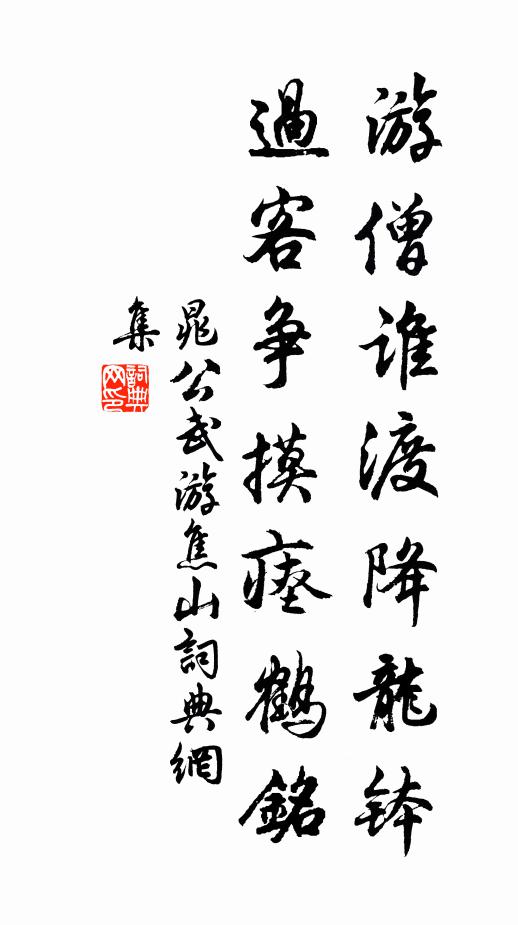 游僧誰渡降龍缽
過客爭摸瘞鶴銘
晁公武游焦山詞典網
集
詞典
网印